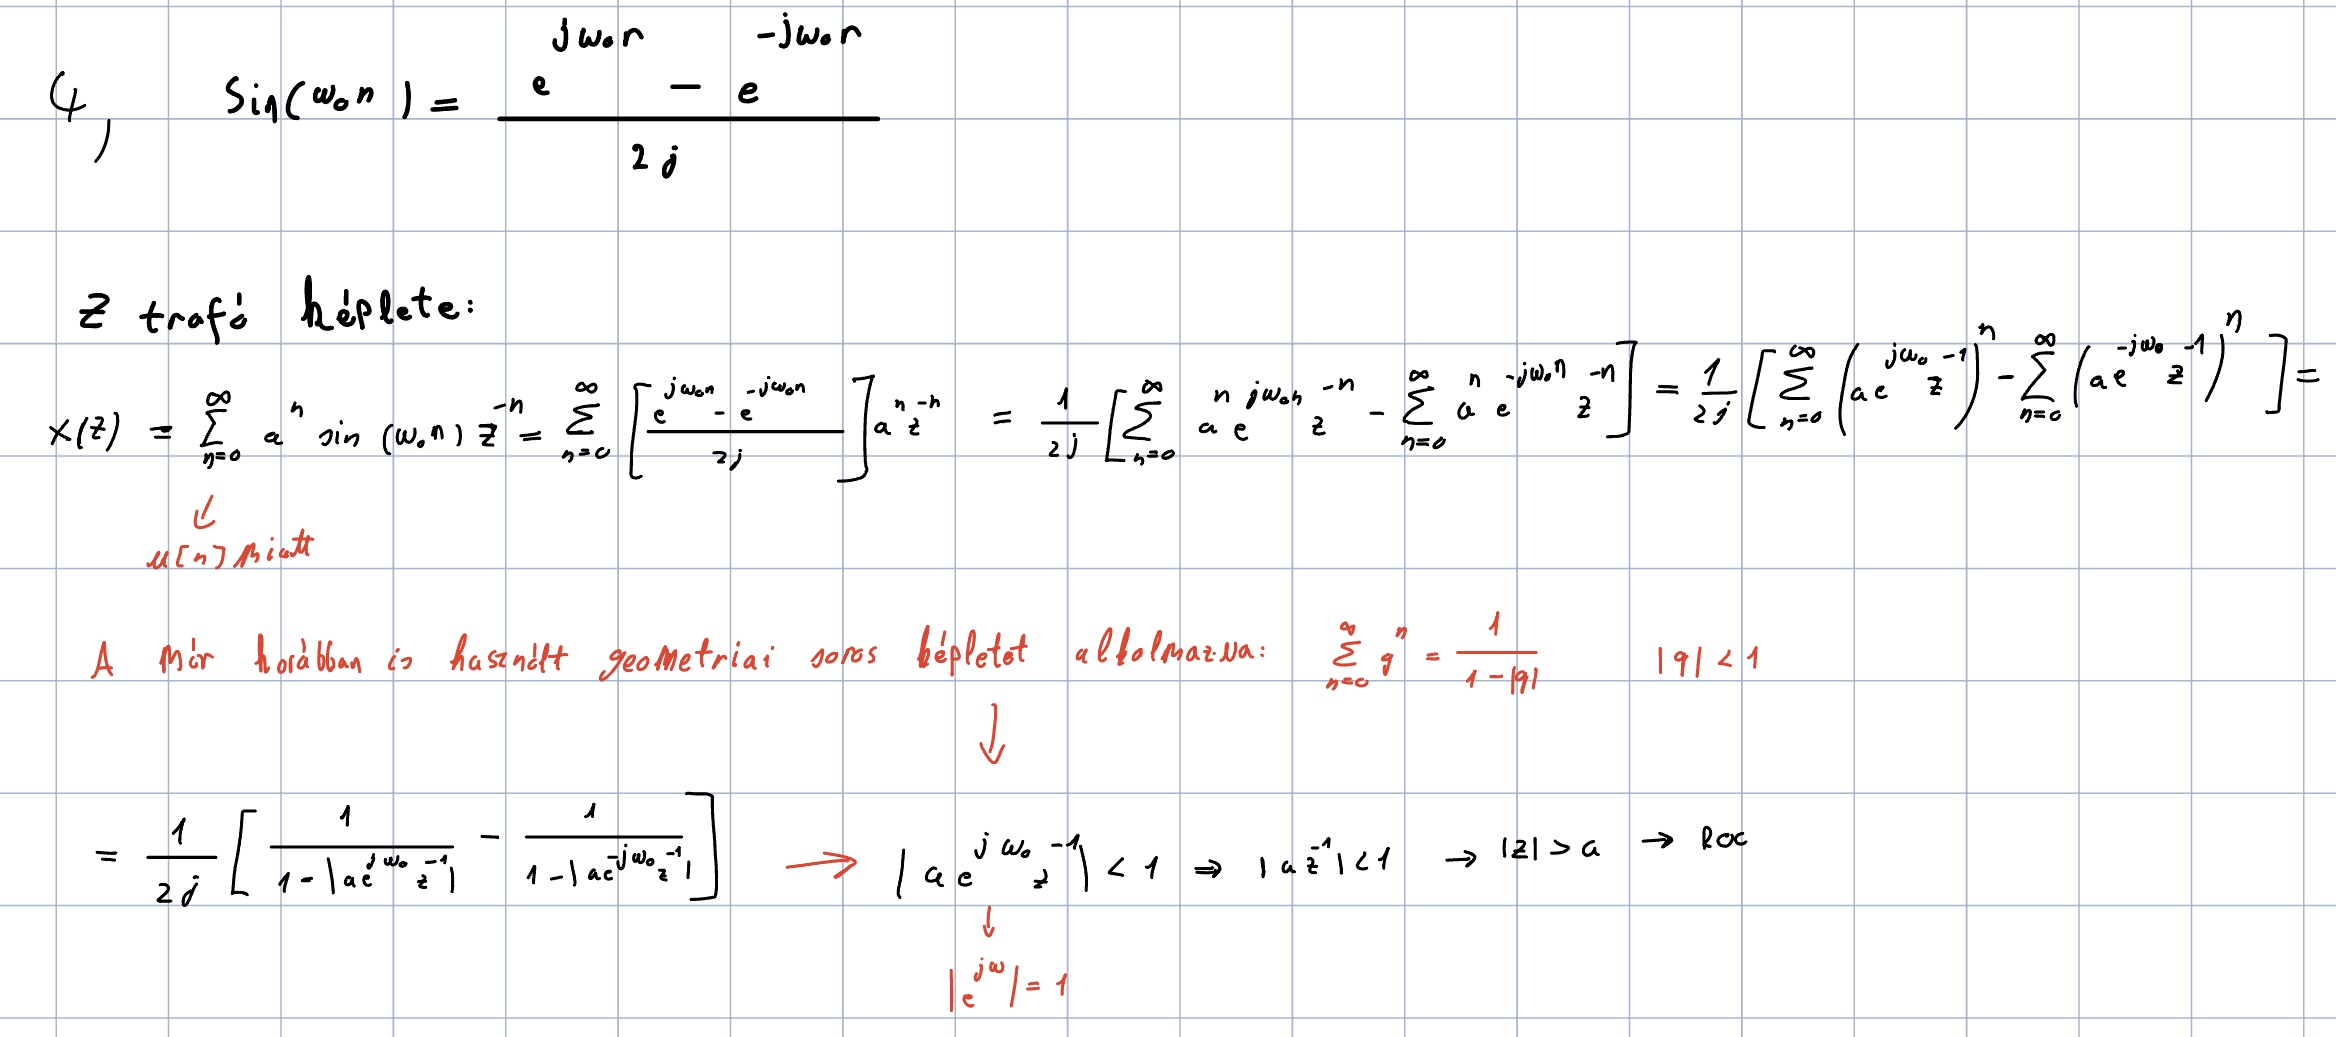 4, Sin(ω₀n) = (e^{jω₀n} - e^{-jω₀n}) / 2j
Z trafó képlete:
X(z) = ∑_{n=0}^{∞} a^n sin(ω₀n) z^{-n} = ∑_{n=0}^{∞} [(e^{jω₀n} - e^{-jω₀n}) / 2j] a^n z^{-n} = 1/2j [∑_{n=0}^{∞} a^n e^{jω₀n} z^{-n} - ∑_{n=0}^{∞} a^n e^{-jω₀n} z^{-n}] = 1/2j [∑_{n=0}^{∞} (a e^{jω₀} z^{-1})^n - ∑_{n=0}^{∞} (a e^{-jω₀} z^{-1})^n] =
↓
u[n] miatt
A már korábban is használt geometriai soros képletet alkalmazva: ∑_{n=0}^{∞} q^n = 1 / (1-|q|) |q| < 1
↓
= 1/2j [1 / (1-|a e^{jω₀} z^{-1}|) - 1 / (1-|a e^{-jω₀} z^{-1}|)] → |a e^{jω₀} z^{-1}| < 1 ⇒ |a z^{-1}| < 1 → |z| > a → ROC
↓
|e^{jω}| = 1